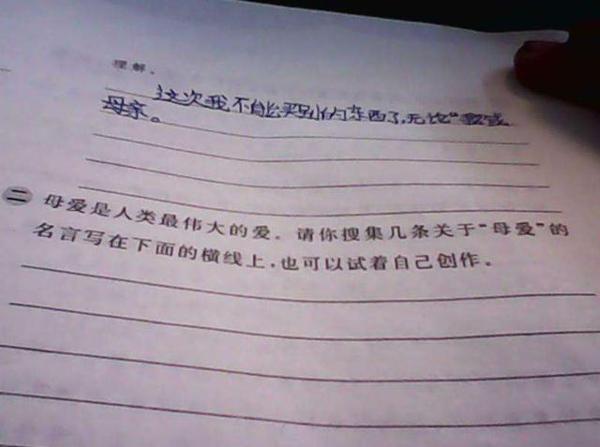 理解。
这次我不能买别的东西了,无论"
母亲。
二 母爱是人类最伟大的爱。请你搜集几条关于"母爱"的
名言写在下面的横线上,也可以试着自己创作。